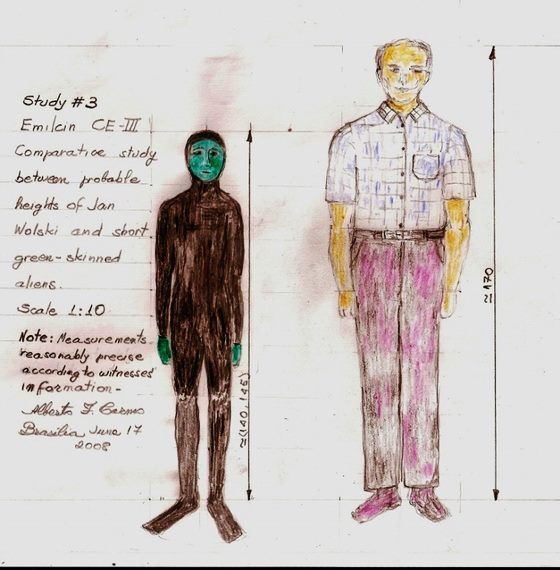 Study #3
Emilcin CE-III
Comparative study
between probable
heights of Jan
Wolski and short
green-skinned
aliens.
Scale 1:10
Note: Measurements
reasonably precise
according to witnesses'
information-
Alberto F. Carmo
Brasilia June 17
2008
≈(140, 145)
≈170